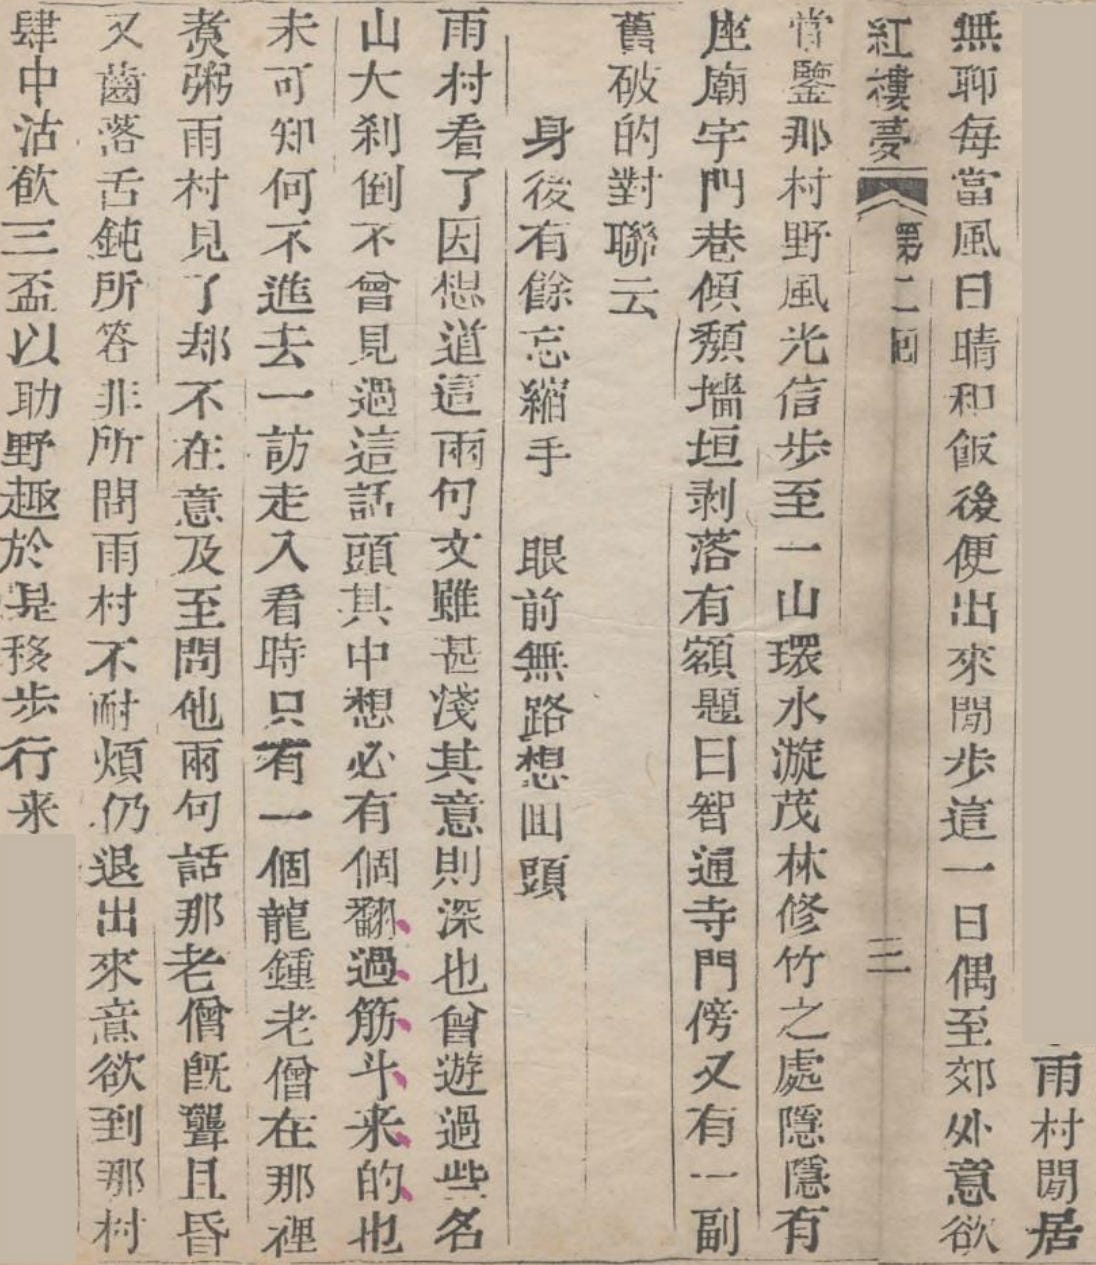 雨村閒居
無聊每當風日晴和飯後便出來閒步這一日偶至郊外意欲
紅樓夢 第二回 三
賞鑒那村野風光信步至一山環水漩茂林修竹之處隱隱有
座廟宇門巷傾頽墻垣剥落有額題曰智通寺門傍又有一副
舊破的對聯云
身後有餘忘縮手 眼前無路想囬頭
雨村看了因想道這兩句文雖甚淺其意則深也曾遊過些名
山大刹倒不曾見過這話頭其中想必有個翻過筋斗来的也
未可知何不進去一訪走入看時只有一個龍鍾老僧在那裡
煑粥雨村見了却不在意及至問他兩句話那老僧既聾且昏
又齒落舌鈍所答非所問雨村不耐煩仍退出來意欲到那村
肆中沽飲三盃以助野趣於是移步行来